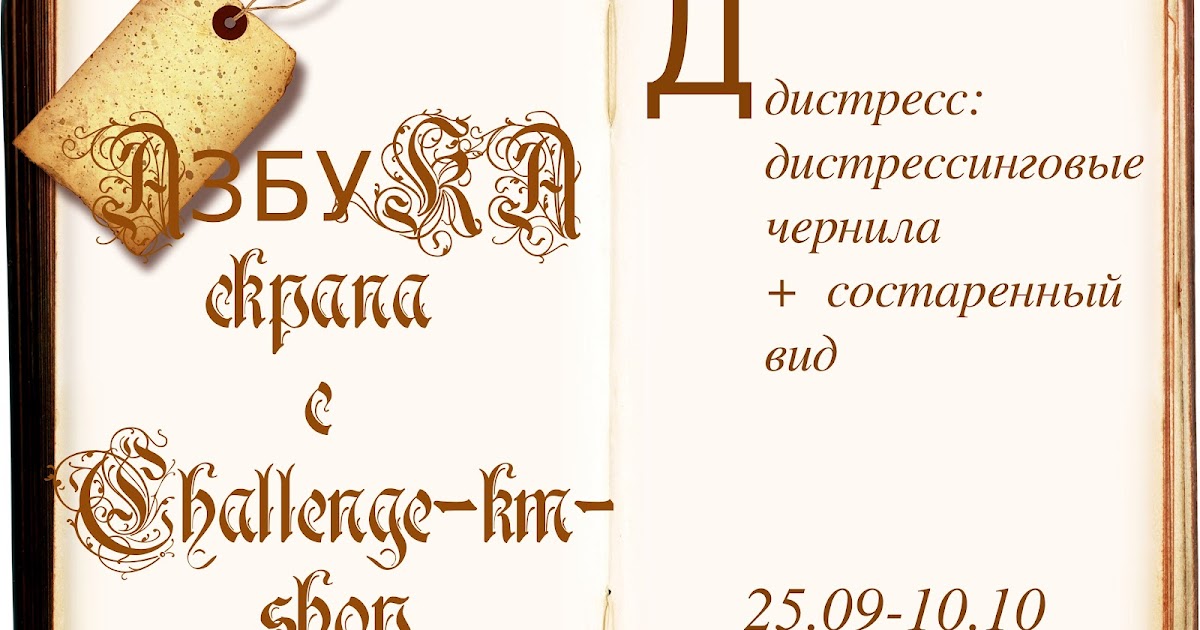 АзбуКА
скрапа
с
Challenge-km-
shop
Д
дистресс:
дистрессинговые
чернила
+ состаренный
вид
25.09-10.10